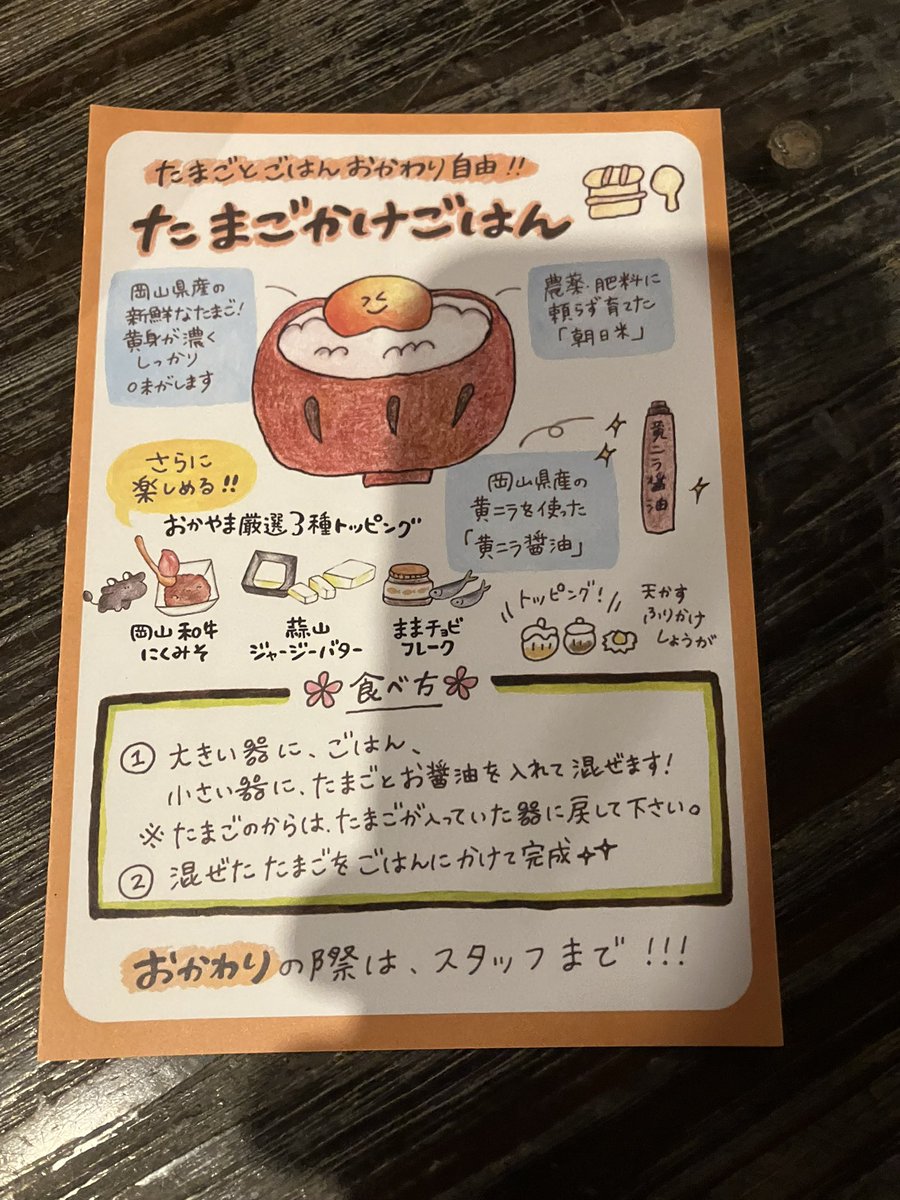 たまごとごはんおかわり自由!!
たまごかけごはん
岡山県産の
新鮮なたまご!
黄身が濃く
しっかり
味がします
農薬・肥料に
頼らず育てた
「朝日米」
黄ニラ醤油
岡山県産の
黄ニラを使った
「黄ニラ醤油」
さらに
楽しめる!!
おかやま厳選3種トッピング
岡山和牛
にくみそ
蒜山
ジャージーバター
ままチョビ
フレーク
トッピング!
天かす
ふりかけ
しょうが
食べ方
① 大きい器に、ごはん、
小さい器に、たまごとお醤油を入れて混ぜます!
※たまごのからは、たまごが入っていた器に戻して下さい。
② 混ぜたたまごをごはんにかけて完成
おかわりの際は、スタッフまで!!!